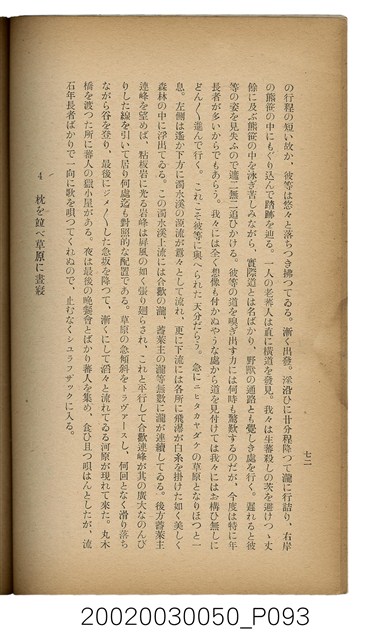 七二
の行程の短い故か、彼等は悠々と落ちつき拂つてゐる。漸く出發。澤沿ひに廿分程降つて瀧に行詰り、右岸
の熊笹の中にもぐり込んで踏跡を辿る。一人の老蕃人は直に橫道を發見。我々は生蕃殺しの茨を避けつゝ丈
餘に及ぶ熊笹の中を泳ぎ苦しみながら、實際道とは名ばかり、野獸の通路とも覺しき處を行く。遲れると彼
等の姿を見失ふので遮二無二追ひかける。彼等の道を嗅ぎ出す力には何時も驚歎するのだが、今度は特に年
長者が多いからでもあらう。我々には全く想像も付かぬやうな處から道を見付けては我々にはお構ひ無しに
どん〱進んで行く。これこそ彼等に與へられた天分だらう。急にニヒタカヤダケの草原となりほつと一
息。左側は遙か下方に濁水溪の源流が囂々として流れ、更に下流には各所に飛瀑が白糸を掛けた如く美しく
森林の中に浮出てゐる。この濁水溪上流には合歡の瀧、薈萊主の瀧等無數に瀧が連續してゐる。後方薈萊主
連峰を望めば、粘板岩に光る岩峰は屛風の如く張り廻らされ、これと平行して合歡連峰が其の廣大なのんび
りした線を引いて居り何處迄も對照的な配置である。草原の急傾斜をトラヴァースし、何回となく滑り落ち
ながら谷を登り、最後にジメ〱した急坂を降つて、漸くにして滔々と流れてゐる河原が現れて來た。丸木
橋を渡つた所に蕃人の獵小屋がある。夜は最後の晚餐會とばかり蕃人を集め、食ひ且つ唄はんとしたが、流
石年長者ばかりで一向に歌を唄つてくれぬので、止むなくシユラフザックに入る。
4 枕を竝べ草原に晝寢
20020030050_P093